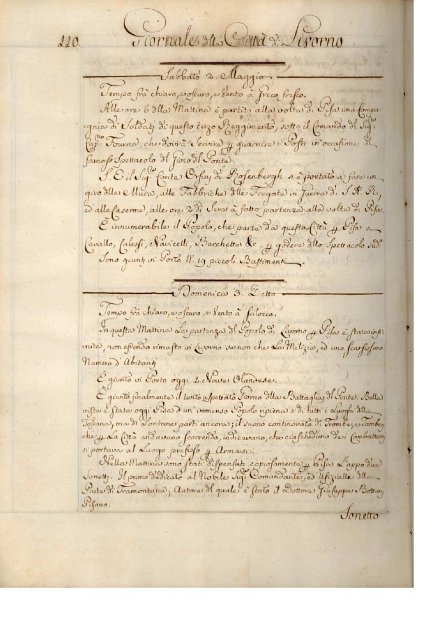 110 Giornale della Città di Livorno
Sabbato 2. Maggio
Tempo frà chiaro, e oscuro, e vento à Greco fresco.
Alle ore 6 della Mattina è partita alla volta di Pisa una Compa-
gnia di Soldati di questo Reggimento, sotto il Comando del Sigr.
Capno. Fournè, che dovrà servire p guarnire i Posti in occasione del
famoso Spettacolo del Gioco del Ponte.
S. E. il Sigr. Conte Orsini de Rosenbergh si è portato a fare un
giro delle Mura, alle Fabbriche delle Fregate in Guerra di S. A. R.,
ed alle Caserme, alle ore 2 di Sera à fatto partenza alla volta di Pisa.
È innumerabile il Popolo, che parte da questa Città p Pisa a
Cavallo, Calessi, Navicelli, Barchetta &c. p godere dello Spettacolo sud.
Sono giunti in Porto N. 19 piccoli Bastimenti.
Domenica 3. Detto
Tempo frà chiaro, e oscuro, e vento à Scilocco.
In questa Mattina La partenza del Popolo di Livorno p Pisa è stata infi-
nita, non essendo rimasto in Livorno se non che La Milizia, ed uno scarsissimo
Numero d'Abitanti.
È giunto in Porto oggi 2 Nave Olandese.
È giunto finalmente il tanto sospirato Giorno della Battaglia del Ponte. Bella
vista è stata oggi Pisa d'un immenso Popolo ripiena di tutti i Luoghi della
Toscana, ma di Lontane parti ancora; il suono continovato di Trombe, e Tambur
che p La Città andavano scorrendo, indicavano, che ciascheduno dei Combattenti
si portava al Luogo prefisso p Armarsi.
Nella Mattina sono stati dispensati copiosamente p Pisa L'appo due
Sonetti. Il primo dedicato al Nobile Sigr. Comandante, ed Ufiziali della
Parte di Tramontana, Autore del quale è stato il Dottore Giuseppe Bottoni
Pisano.
Sonetto